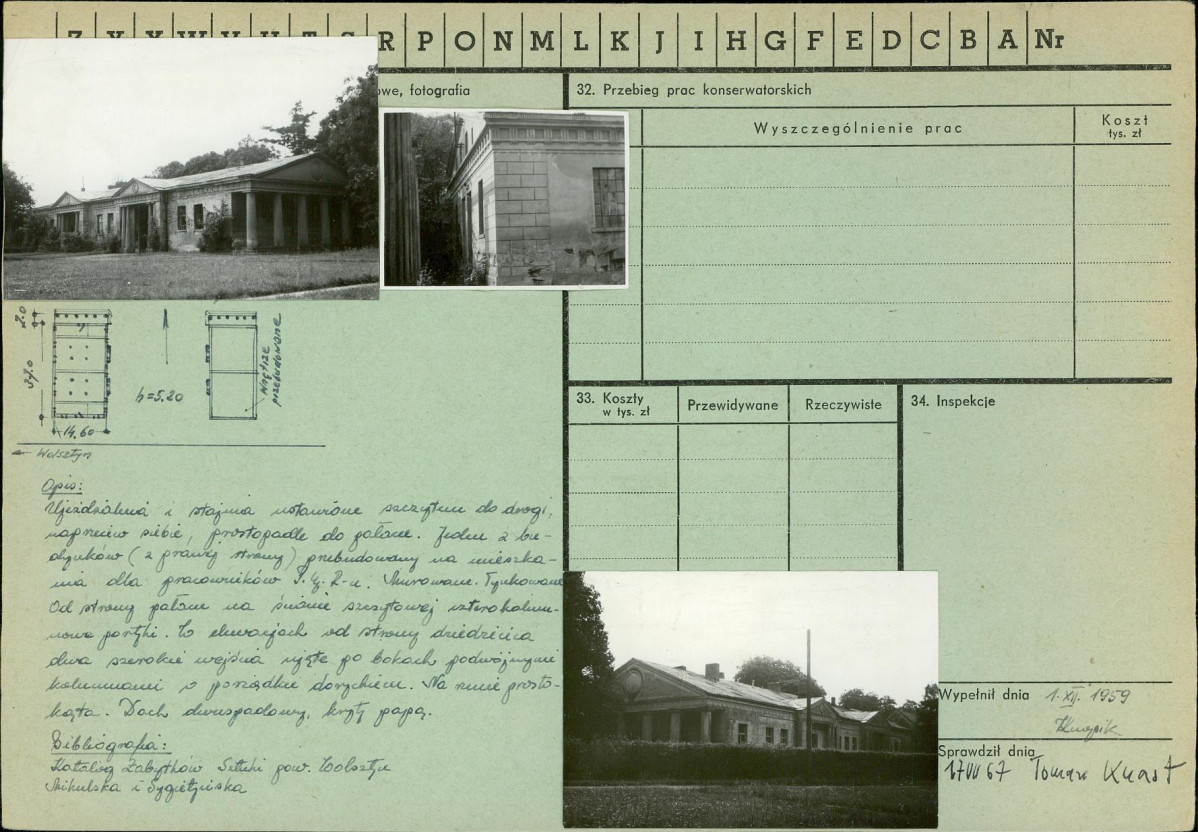 R P O N M L K J I H G F E D C B A Nr
owe, fotografia
32. Przebieg prac konserwatorskich
Wyszczególnienie prac
Koszt
tys. zł
7.0
37.0
14.60
h=5.20
wnętrze
przebudowane
← Wolsztyn
33. Koszty
w tys. zł
Przewidywane
Rzeczywiste
34. Inspekcje
Opis:
Ujeżdżalnia i stajnia ustawione szczytem do drogi,
naprzeciw siebie, prostopadle do pałacu. Jeden z bu-
dynków (z prawej strony) przebudowany na mieszka-
nia dla pracowników Murowane. Tynkowane
Od strony pałacu na ścianie szczytowej czterokolum-
nowe portyki. W elewacjach od strony dziedzińca
dwa szerokie wejścia ujęte po bokach podwójnymi
kolumnami w porządku doryckim. Na rzucie prosto-
kąta. Dach dwuspadowy, kryty papą.
Bibliografia:
Katalog Zabytków Sztuki pow. Wolsztyn
i
Wypełnił dnia 1.XII.1959
Sprawdził dnia
17 VII 67 Tomasz Knast